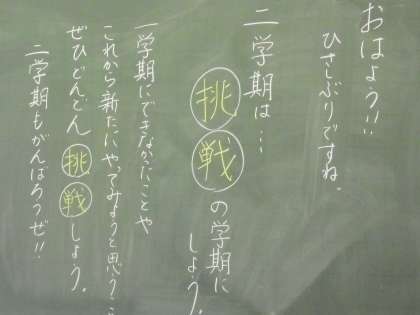 おはよう!!
ひさしぶりですね。
二学期は…
挑戦の学期に
しよう。
一学期にできなかったことや
これから新たにやってみようと思うこ
ぜひどんどん挑戦しよう。
二学期もがんばろうぜ!!